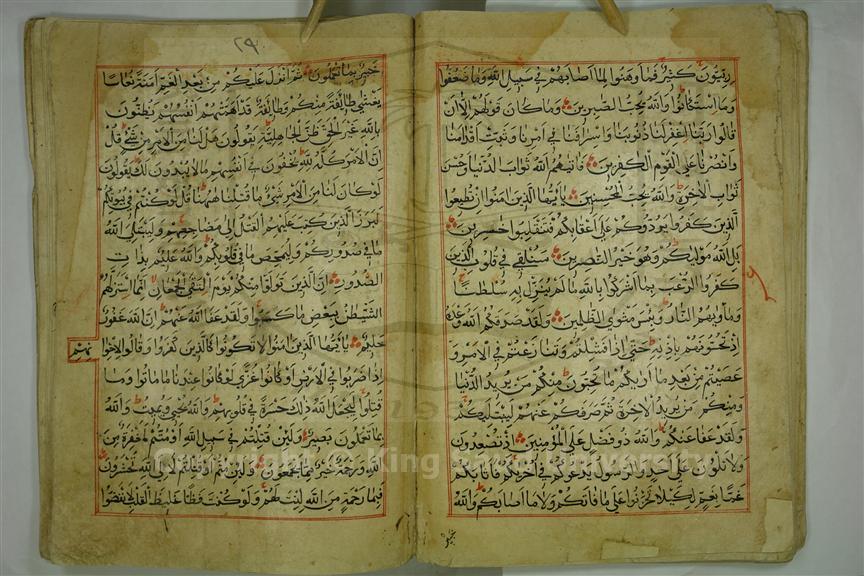 ربيون كثير فما وهنوا لما اصابهم في سبيل الله وما ضعفوا
وما استكانوا والله يحب الصبرين وما كان قولهم الا ان
قالوا ربنا اغفر لنا ذنوبنا واسرافنا في امرنا وثبت اقدامنا
وانصرنا على القوم الكفرين فاتيهم الله ثواب الدنيا وحسن
ثواب الاخرة والله يحب المحسنين يا ايها الذين امنوا ان تطيعوا
الذين كفروا يردوكم على اعقابكم فتنقلبوا خسرين
بل الله موليكم وهو خير النصرين سنلقي في قلوب الذين
كفروا الرعب بما اشركوا بالله ما لم ينزل به سلطنا
وماويهم النار وبئس مثوى الظلمين ولقد صدقكم الله وعده
اذ تحسونهم باذنه حتى اذا فشلتم وتنازعتم في الامر و
عصيتم من بعد ما اريكم ما تحبون منكم من يريد الدنيا
ومنكم من يريد الاخرة ثم صرفكم عنهم ليبتليكم
ولقد عفا عنكم والله ذو فضل على المؤمنين اذ تصعدون
ولا تلون على احد والرسول يدعوكم في اخريكم فاثابكم
غما بغم لكيلا تحزنوا على ما فاتكم ولا ما اصابكم والله
خبير
٢٩
خبير بما تعملون ثم انزل عليكم من بعد الغم امنة نعاسا
يغشى طائفة منكم وطائفة قد اهمتهم انفسهم يظنون
بالله غير الحق ظن الجاهلية يقولون هل لنا من الامر من شئ قل
ان الامر كله لله يخفون في انفسهم ما لا يبدون لك يقولون
لو كان لنا من الامر شئ ما قتلنا ههنا قل لو كنتم في بيوتكم
لبرز الذين كتب عليهم القتل الى مضاجعهم وليبتلي الله
ما في صدوركم وليمحص ما في قلوبكم والله عليم بذات
الصدور ان الذين تولوا منكم يوم التقى الجمعان انما استزلهم
الشيطن ببعض ما كسبوا ولقد عفا الله عنهم ان الله غفور
حليم يا ايها الذين امنوا لا تكونوا كالذين كفروا وقالوا لاخوا
نهم
اذا ضربوا في الارض او كانوا غزى لو كانوا عندنا ما ماتوا وما
قتلوا ليجعل الله ذلك حسرة في قلوبهم والله يحيي ويميت والله
بما تعملون بصير ولئن قتلتم في سبيل الله او متم لمغفرة من
الله ورحمة خير مما يجمعون ولئن متم او قتلتم لالى الله تحشرون
فبما رحمة من الله لنت لهم ولو كنت فظا غليظ القلب لانفضوا
Copyright © King Saud University